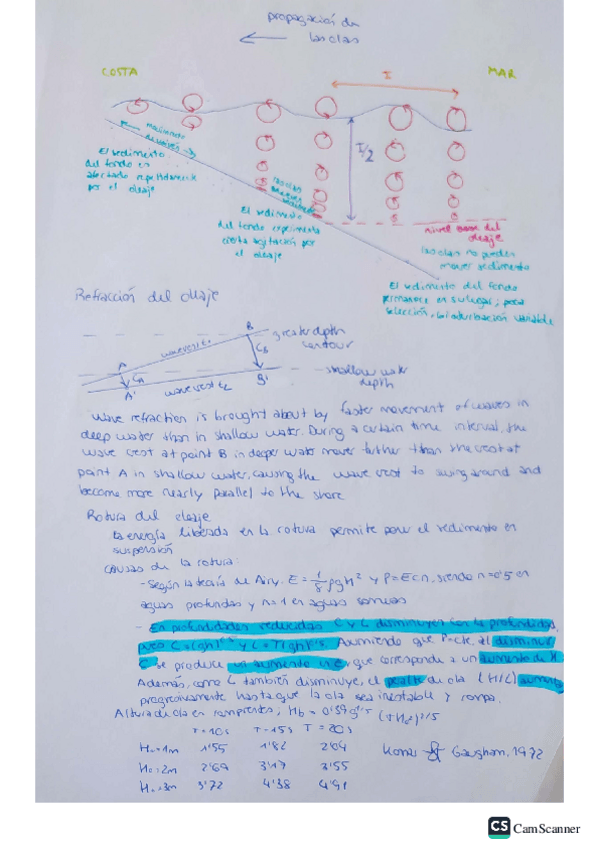 propagación de
las olas
COSTA
MAR
L
movimiento
de vaivén
L/2
El sedimento
del fondo es
afectado repetidamente
por el oleaje
las olas
mueven
sedimento
El sedimento
del fondo experimenta
cierta agitación por
el oleaje
nivel base del
oleaje
las olas no pueden
mover sedimento
El sedimento del fondo
permanece en su lugar; poca
selección, bioturbación variable
Refracción del oleaje
B
greater depth
contour
wave crest
A
CB
CA
shallow water
depth
A'
wave crest t2
B'
Wave refraction is brought about by faster movement of waves in
deep water than in shallow water. During a certain time interval, the
wave crest at point B in deeper water moves farther than the crest at
point A in shallow water, causing the wave crest to swing around and
become more nearly parallel to the shore
Rotura del oleaje
La energía liberada en la rotura permite poner el sedimento en
suspensión
causas de la rotura:
- Según la teoría de Airy. E = 1/8 ρgH² y P = Ecn, siendo n=0'5 en
aguas profundas y n=1 en aguas someras
- En profundidades reducidas C y L disminuyen con la profundidad,
pues C=(gh)^0'5 y L=T(gh)^0'5. Asumiendo que P=cte, al disminuir
C se produce un aumento in E que corresponde a un aumento de H
Además, como L también disminuye, el peralte de ola (H/L) aumenta
progresivamente hasta que la ola sea inestable y rompa.
Altura de ola en rompientes, Hb = 0'39 g^1/5 (TH₀²)^2/5
T=10s T=15s T=20s
H₀=1m 1'55 1'82 2'04
H₀=2m 2'69 3'17 3'55
H₀=3m 3'72 4'38 4'91
Komar & Gaughan, 1972
CS CamScanner